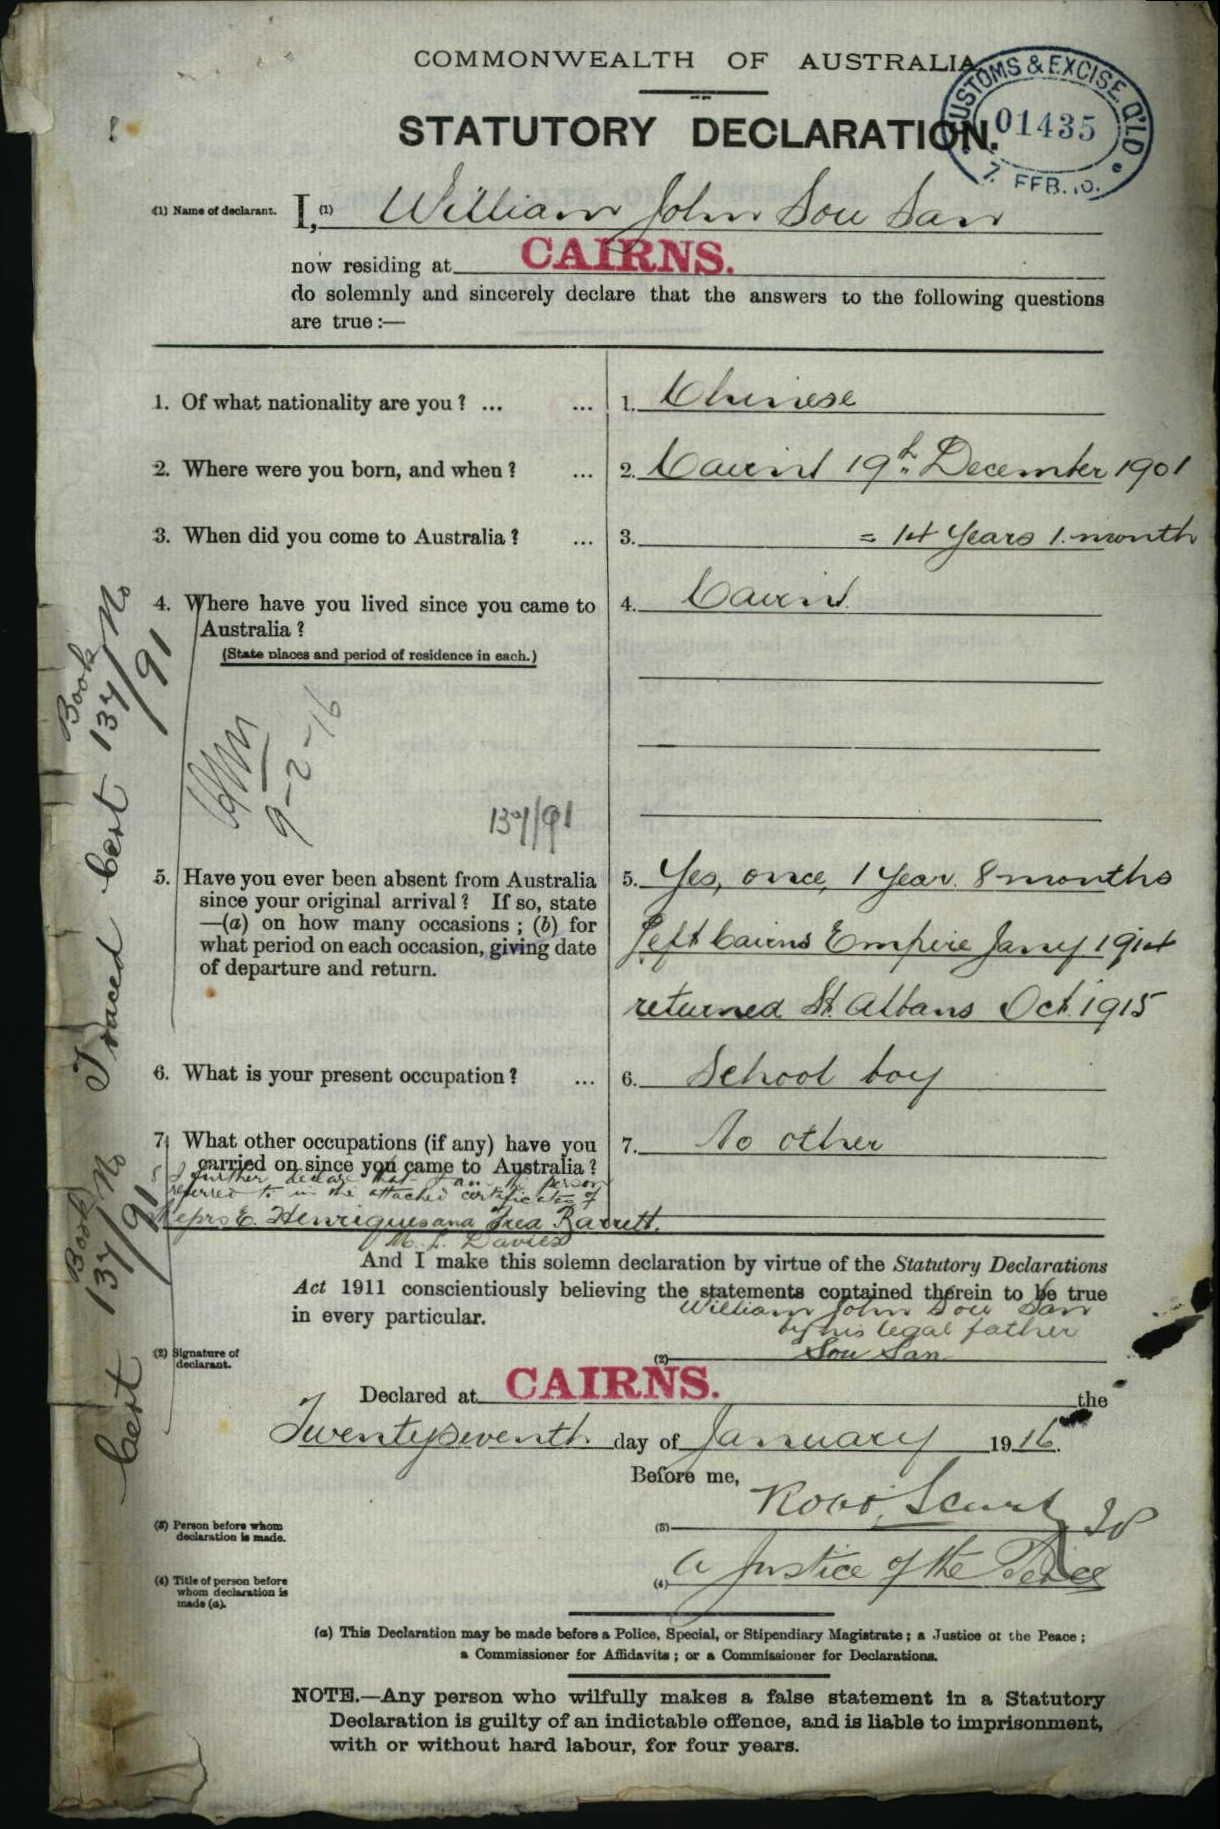 COMMONWEALTH OF AUSTRALIA
STATUTORY DECLARATION.
CUSTOMS & EXCISE. Q'LD
01435
7. FEB.
(1) Name of declarant.
I, (1) William John Sou San
now residing at CAIRNS.
do solemnly and sincerely declare that the answers to the following questions
are true :—
1. Of what nationality are you ? ... ... 1. Chinese
2. Where were you born, and when ? ... 2. Cairns 19th December 1901
3. When did you come to Australia ? ... 3. = 14 Years 1. month
4. Where have you lived since you came to 4. Cairns
Australia ?
(State places and period of residence in each.)
9-2-16
137/91
5. Have you ever been absent from Australia 5. Yes, once, 1 Year. 8 months
since your original arrival ? If so, state
—(a) on how many occasions ; (b) for
what period on each occasion, giving date Left Cairns Empire Jany. 1914
of departure and return.
returned St. Albans Oct. 1915
6. What is your present occupation ? ... 6. School boy
7. What other occupations (if any) have you 7. No other
carried on since you came to Australia ?
8 I further declare that I am the person
referred to in the attached certificates of
Messrs E. Henriques and Fred Barrett.
M. L. Davies
And I make this solemn declaration by virtue of the Statutory Declarations
Act 1911 conscientiously believing the statements contained therein to be true
in every particular.
William John Sou San
by his legal father
(2) Signature of
declarant.
(2) Sou San
Declared at CAIRNS. the
Twentyseventh day of January 1916.
Before me,
(3) Person before whom
declaration is made.
(3) JP
(4) Title of person before
whom declaration is
made (a).
(4) a Justice of the Peace
(a) This Declaration may be made before a Police, Special, or Stipendiary Magistrate ; a Justice of the Peace ;
a Commissioner for Affidavits ; or a Commissioner for Declarations.
NOTE.—Any person who wilfully makes a false statement in a Statutory
Declaration is guilty of an indictable offence, and is liable to imprisonment,
with or without hard labour, for four years.
Traced Cert Book 137/No 91
Cert Book 137/No 91